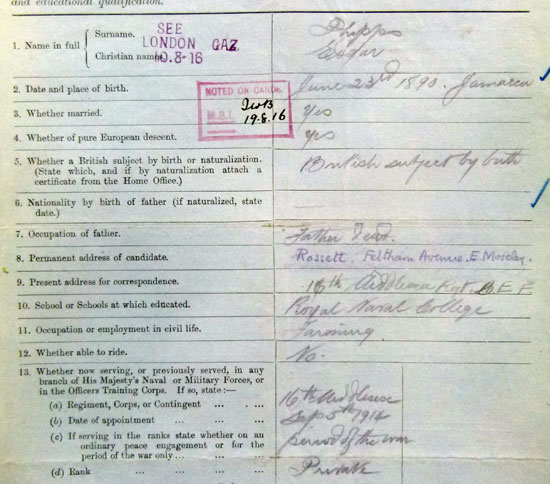 and educational qualification.
SEE
LONDON GAZ.
10.8-16
1. Name in full { Surname. Phipps
Christian names.
NOTED ON CARDS
M.B.1.
19.8.16
2. Date and place of birth. June 23rd 1890. Jamaica
3. Whether married. Yes
4. Whether of pure European descent. Yes
5. Whether a British subject by birth or naturalization. British subject by birth
(State which, and if by naturalization attach a
certificate from the Home Office.)
6. Nationality by birth of father (if naturalized, state
date.)
7. Occupation of father. Father dead.
8. Permanent address of candidate. Rossett. Feltham Avenue. E. Moseley.
9. Present address for correspondence. 16th Middlesex Regt. B.E.F
10. School or Schools at which educated. Royal Naval College
11. Occupation or employment in civil life. Farming.
12. Whether able to ride. No.
13. Whether now serving, or previously served, in any
branch of His Majesty's Naval or Military Forces, or
in the Officers Training Corps. If so, state :—
(a) Regiment, Corps, or Contingent ... ... ... 16th Middlesex
(b) Date of appointment ... ... ... Sep 5th 1914
(c) If serving in the ranks state whether on an
ordinary peace engagement or for the
period of the war only ... ... ... period of the war
(d) Rank ... ... ... ... Private